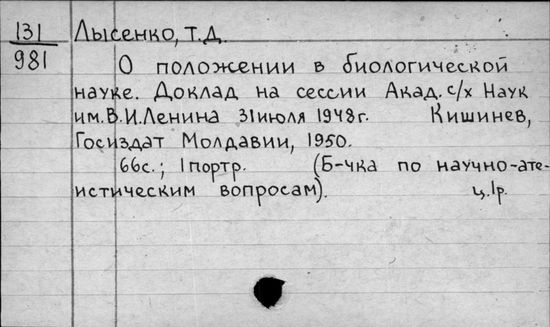 131 Лысенко, Т.Д.
981
О положении в биологической
науке. Доклад на сессии Акад. с/х Наук
им. В.И. Ленина 31 июля 1948 г. Кишинев,
Госиздат Молдавии, 1950.
66с.; 1 портр. (Б-чка по научно-ате-
истическим вопросам). ц. 1р.